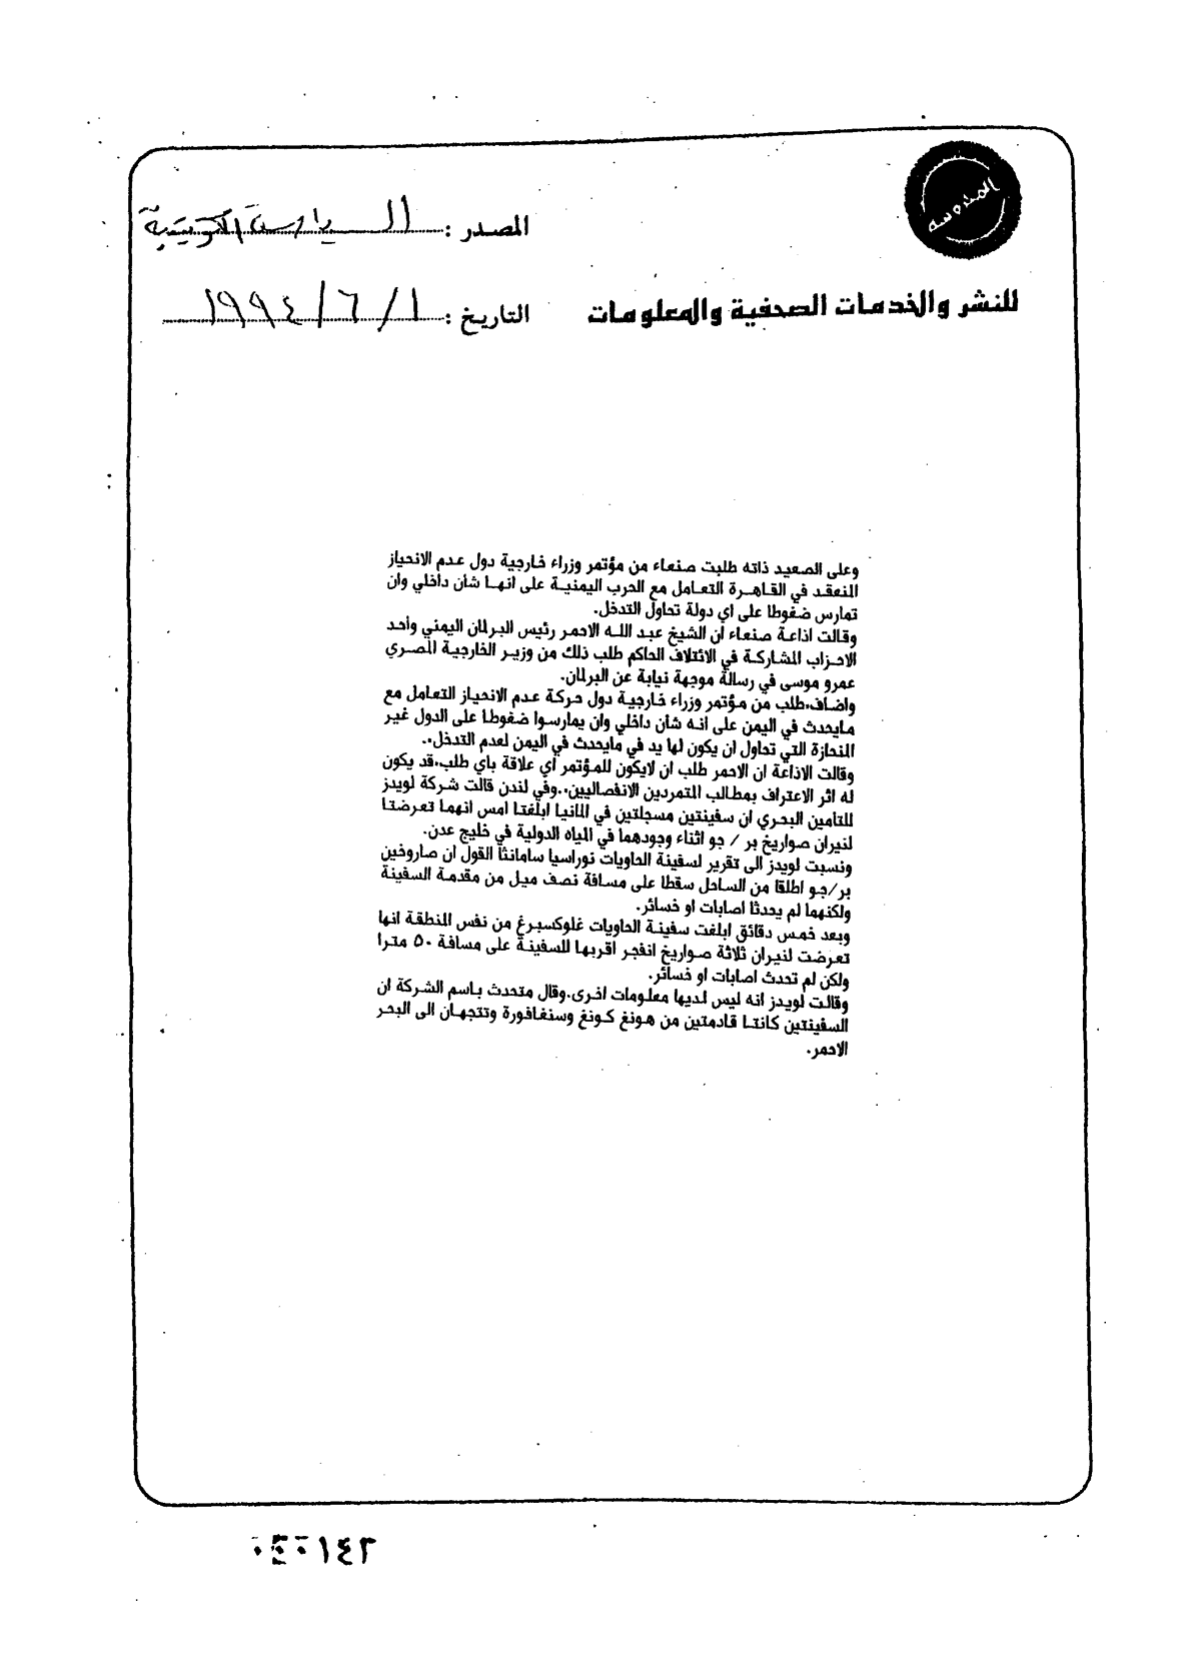 المصدر : السياسة الكويتية
للنشر والخدمات الصحفية والمعلومات
التاريخ : ١ / ٦ / ١٩٩٤
وعلى الصعيد ذاته طلبت صنعاء من مؤتمر وزراء خارجية دول عدم الانحياز
المنعقد في القاهرة التعامل مع الحرب اليمنية على انها شأن داخلي وان
تمارس ضغوطا على اي دولة تحاول التدخل.
وقالت اذاعة صنعاء ان الشيخ عبد الله الاحمر رئيس البرلمان اليمني وأحد
الاحزاب المشاركة في الائتلاف الحاكم طلب ذلك من وزير الخارجية المصري
عمرو موسى في رسالة موجهة نيابة عن البرلمان.
واضاف،طلب من مؤتمر وزراء خارجية دول حركة عدم الانحياز التعامل مع
مايحدث في اليمن على انه شأن داخلي وان يمارسوا ضغوطا على الدول غير
المنحازة التي تحاول ان يكون لها يد في مايحدث في اليمن لعدم التدخل،.
وقالت الاذاعة ان الاحمر طلب ان لايكون للمؤتمر أي علاقة باي طلب،قد يكون
له اثر الاعتراف بمطالب المتمردين الانفصاليين،.وفي لندن قالت شركة لويدز
للتامين البحري ان سفينتين مسجلتين في المانيا ابلغتا امس انهما تعرضتا
لنيران صواريخ بر / جو اثناء وجودهما في المياه الدولية في خليج عدن.
ونسبت لويدز الى تقرير لسفينة الحاويات نوراسيا سامانثا القول ان صاروخين
بر/جو اطلقا من الساحل سقطا على مسافة نصف ميل من مقدمة السفينة
ولكنهما لم يحدثا اصابات او خسائر.
وبعد خمس دقائق ابلغت سفينة الحاويات غلوكسبرغ من نفس المنطقة انها
تعرضت لنيران ثلاثة صواريخ انفجر اقربها للسفينة على مسافة ٥٠ مترا
ولكن لم تحدث اصابات او خسائر.
وقالت لويدز انه ليس لديها معلومات اخرى.وقال متحدث باسم الشركة ان
السفينتين كانتا قادمتين من هونغ كونغ وسنغافورة وتتجهان الى البحر
الاحمر.